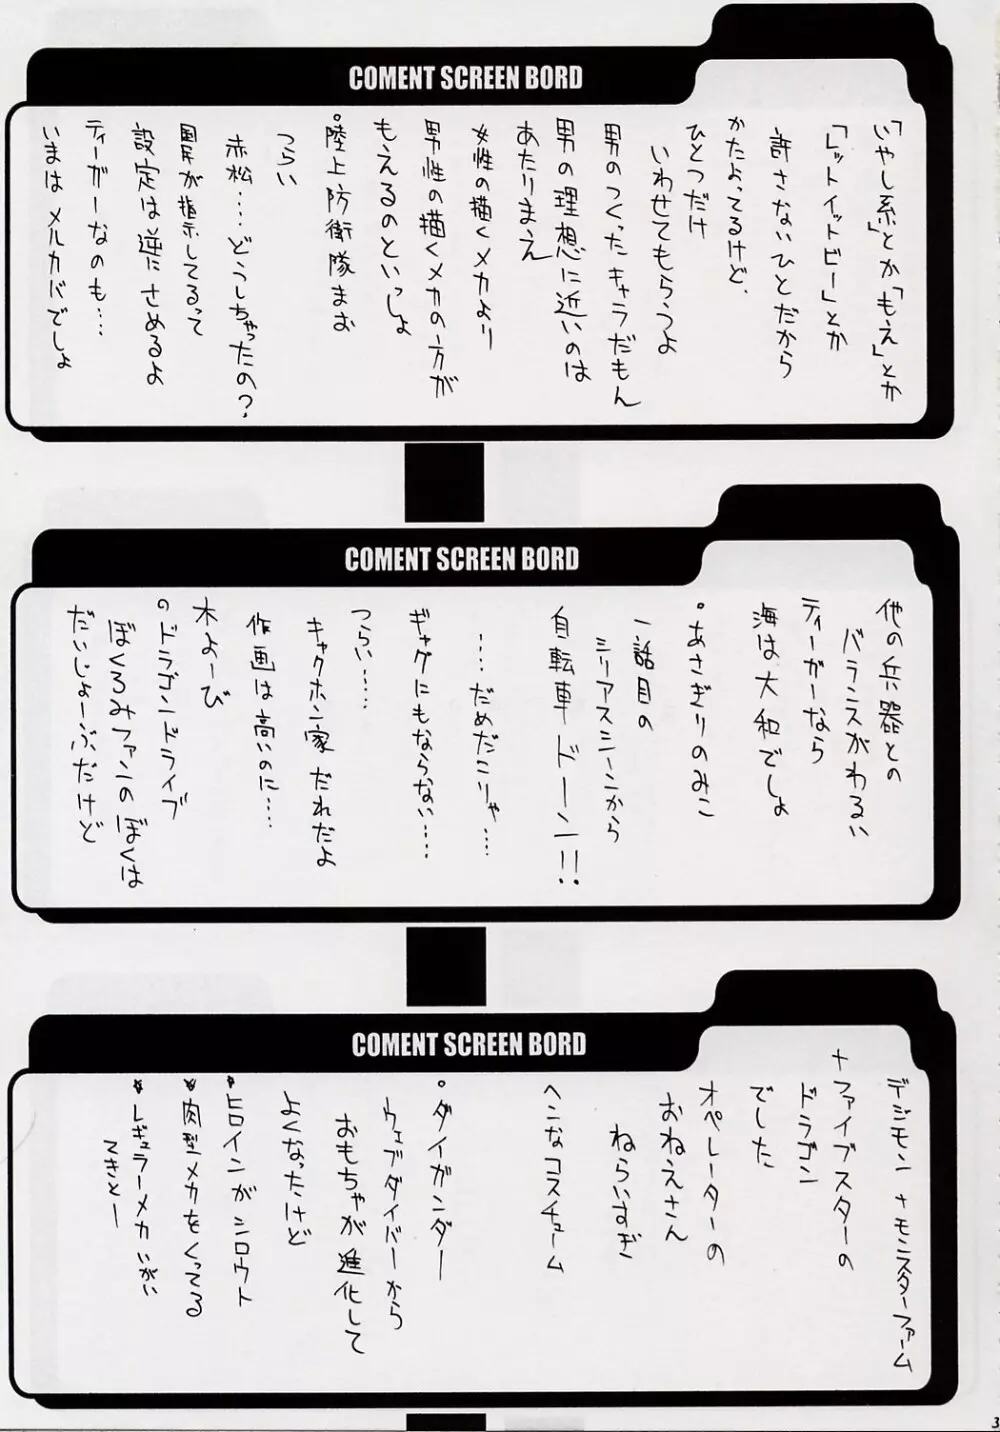 COMENT SCREEN BORD
「いやし系」とか「もえ」とか
「レットイットビー」とか
許さないひとだから
かたよってるけど、
ひとつだけ
いわせてもらうよ
男のつくったキャラだもん
男の理想に近いのは
あたりまえ
女性の描くメカより
男性の描くメカの方が
もえるのといっしょ
。陸上防衛隊まお
つらい
赤松‥‥どうしちゃったの?
国が指示してるって
設定は逆にさめるよ
ティーガーなのも‥‥
いまはメルカバでしょ
COMENT SCREEN BORD
他の兵器との
バランスがわるい
ティーガーなら
海は大和でしょ
。あさぎりのみこ
一話目の
シリアスシーンから
自転車ドーン!!
‥‥だめだこりゃ‥‥
ギャグにもならない‥‥
つらい‥‥‥
キャクホン家だれだよ
作画は高いのに‥‥
木よーび
。ドラゴンドライブ
ぼくろみファンのぼくは
だいじょーぶだけど
COMENT SCREEN BORD
デジモン+モンスターファーム
+ファイブスターの
ドラゴン
でした
オペレーターの
おねえさん
ねらいすぎ
ヘンなコスチューム
。ダイガンダー
ウェブダイバーから
おもちゃが進化して
よくなったけど
ヒロインがシロウト
肉型メカをくってる
レギュラーメカいがい
てきとー
3